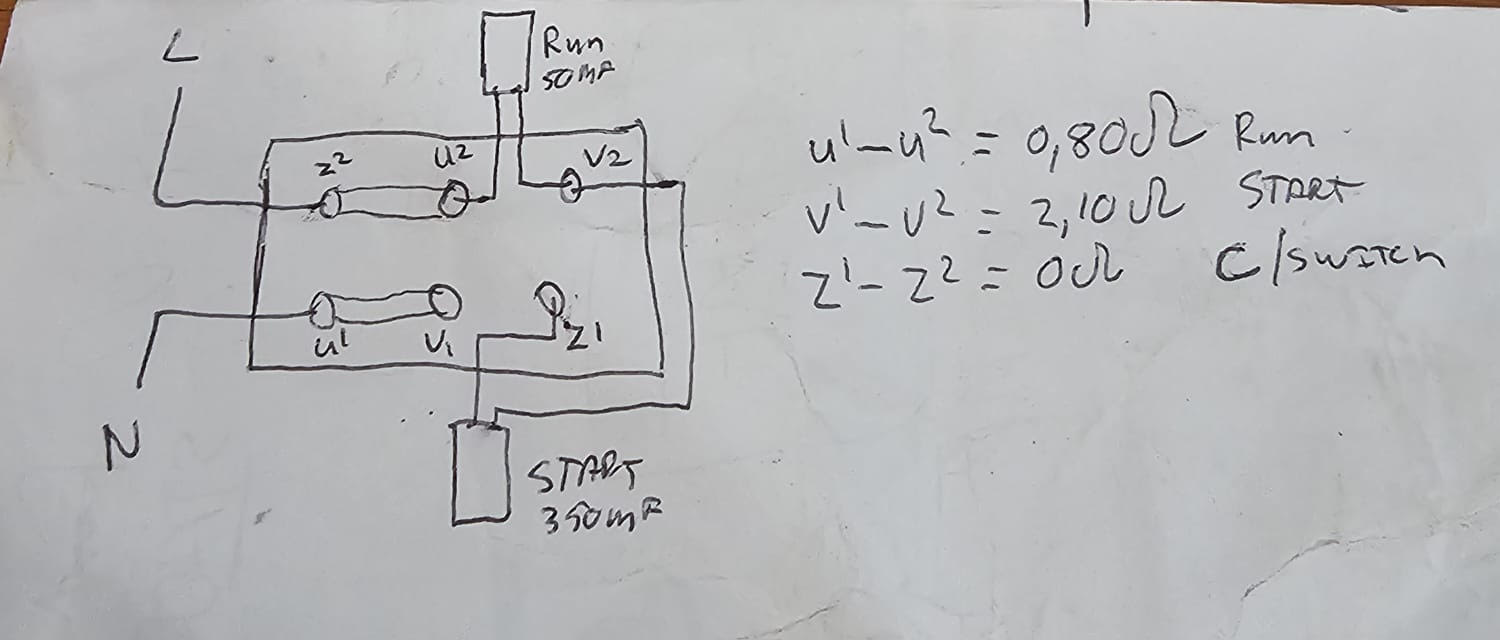 L
Run
50MF
Z²
U²
V2
U¹
V₁
Z1
N
START
350MF
U¹-U² = 0,80Ω Run
V¹-V² = 2,10Ω START
Z¹-Z² = 0Ω C/SWITCH